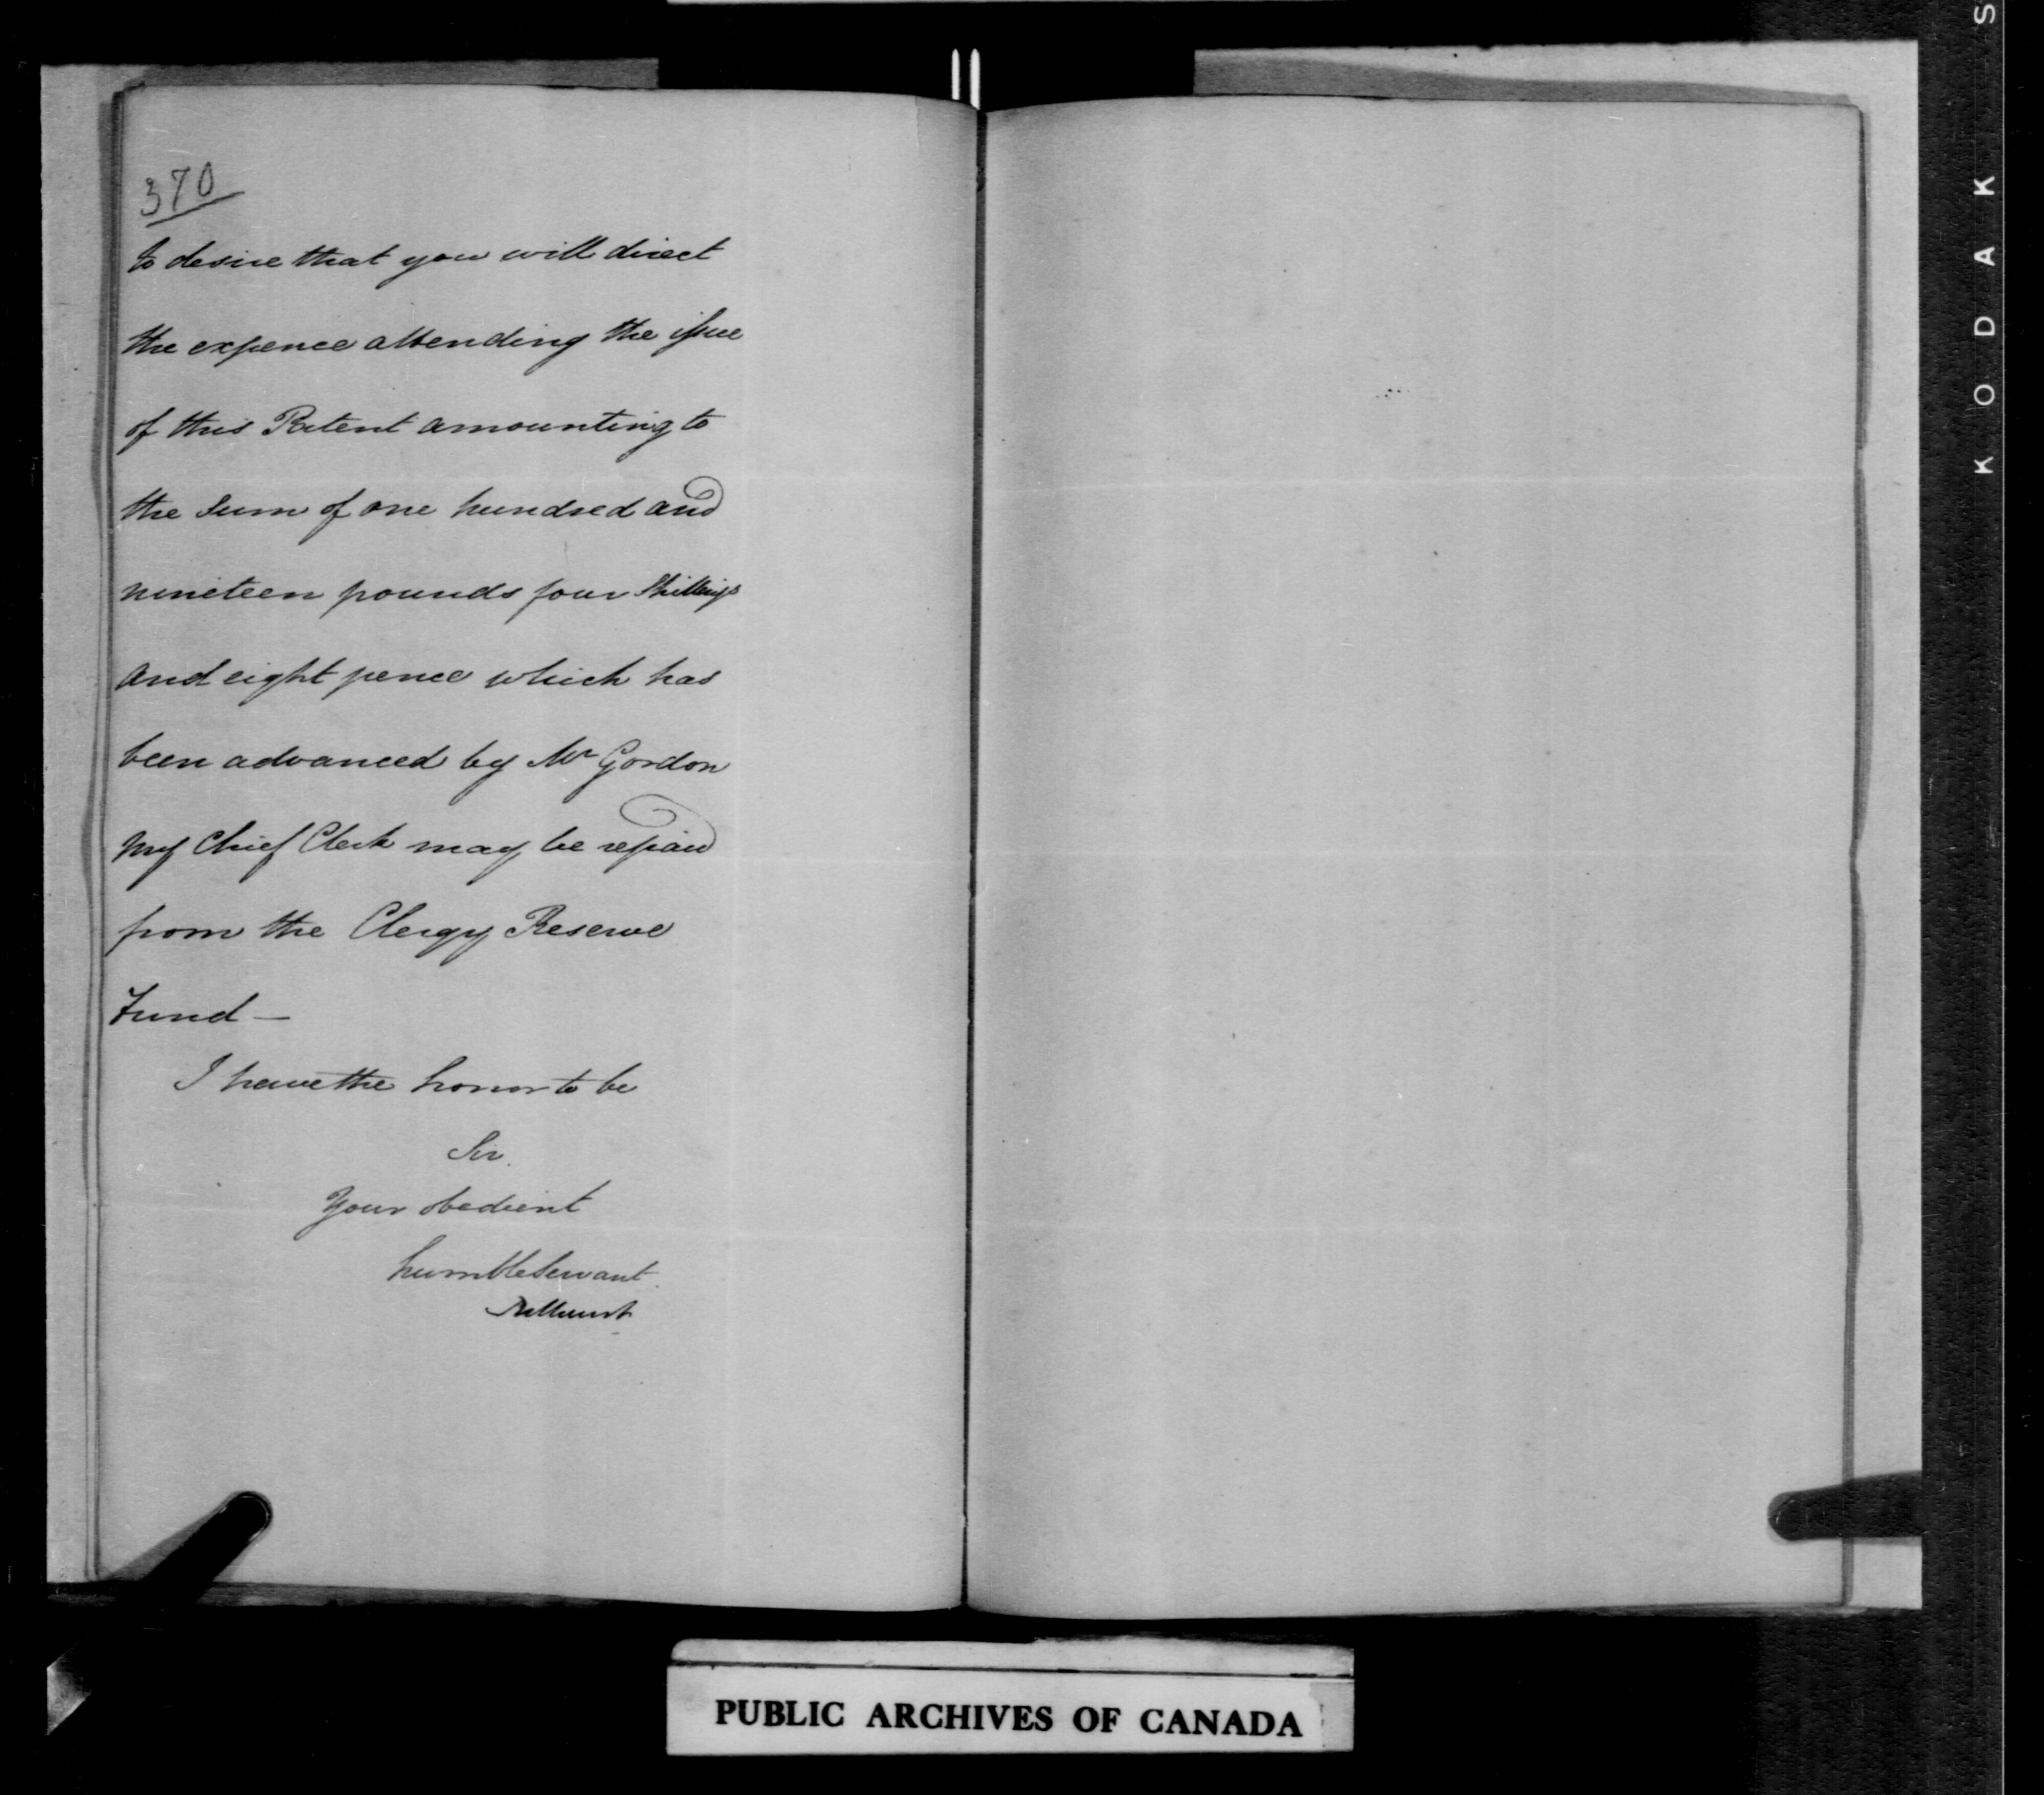 370
to desire that you will direct
the expence attending the issue
of this Patent amounting to
the Sum of one hundred and
nineteen pounds four Shillings
and eight pence which has
been advanced by Mr Gordon
my Chief Clerk may be repaid
from the Clergy Reserve
Fund —
I have the honor to be
Sir
Your obedient
humble Servant
Bathurst
PUBLIC ARCHIVES OF CANADA
KODAK S